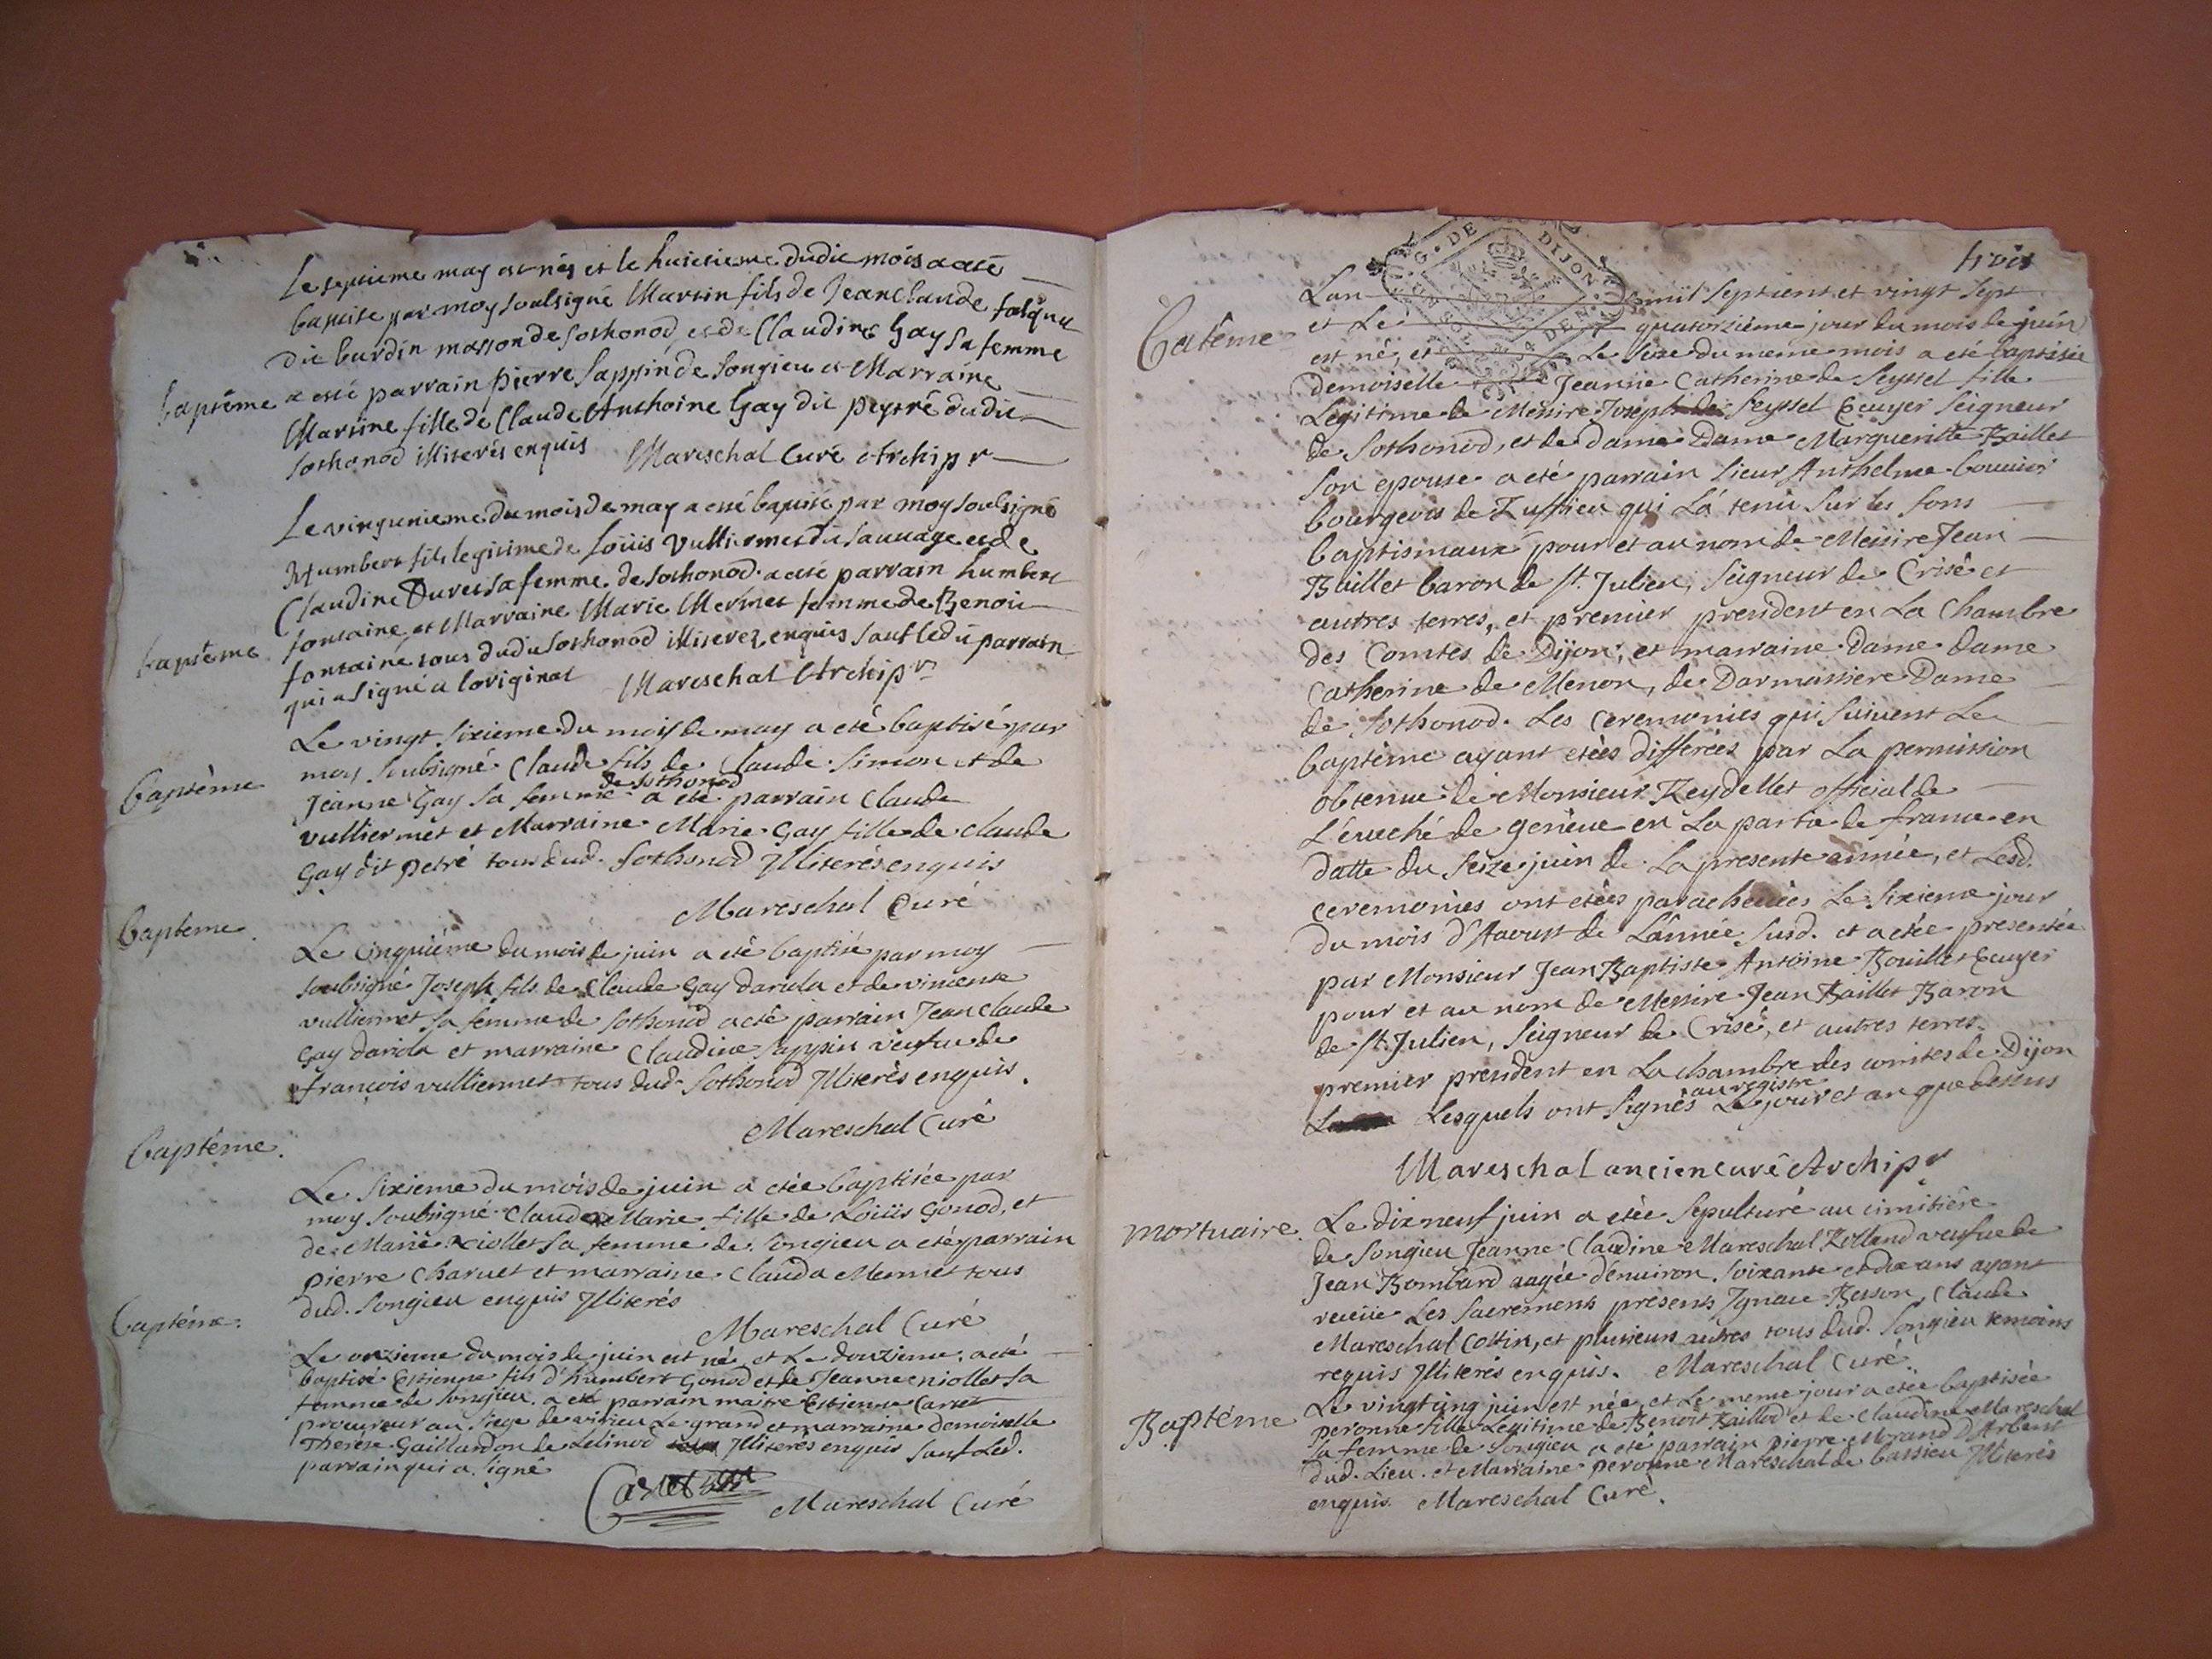 Le septieme may est nés et le huictieme dudit mois a eté
baptisé par moy soubsigné Martin fils de Jean Claude
dit burdin masson de sothonod, et de Claudine Gay sa femme
baptême
a esté parrain pierre sappin de songieu et Marraine
Martine fille de Claude Anthoine Gay dit peytré dudit
sothonod illiterés enquis Mareschal Curé Archipr
Le vingunieme du mois de may a esté baptisé par moy soubsigné
Humbert fils legitime de Loüis Vulliermet du sauvage et de
Claudine Duret sa femme de sothonod a eté parrain humbert
baptême
fontaine et Marraine Marie Mermet femme de Benoit
fontaine tous dudit sothonod illiterez enquis sauf ledit parrain
qui a signé a loriginal Mareschal Archipr
Le vingt sixieme du mois de may a eté baptisé par
moy soubsigné Claude fils de Claude Simon et de
Baptême
de sothonod
Jeanne Gay sa femme a eté parrain Claude
vulliermet et Marraine Marie Gay fille de claude
Gay dit petré tous dud. Sothonod Jlliterés enquis
Mareschal Curé
Bapteme
Le cinquiéme du mois de juin a eté baptisé par moy
soubsigné Joseph fils de Claude Gay darida et de vincente
vulliermet sa femme de sothonod a eté parrain Jean Claude
Gay darida et marraine Claudine sappin veufue de
françois vulliermet tous dud. Sothonod Jlliterés enquis.
Mareschal Curé
Baptême.
Le sixieme du mois de juin a etée baptisée par
moy soubsigné Claude Marie fille de Loüis Gonod, et
de Marie niollet sa femme de songieu a eté parrain
pierre Charuet et marraine Clauda Mermet tous
dud. Songieu enquis Jlliterés
Mareschal Curé
Baptême.
Le onzieme du mois de juin est né et Le douzieme a eté
baptisé Estienne fils d'humbert Gonod et de Jeanne niollet sa
femme de songieu a eté parrain maitre Estienne Carret
procureur au siege de virieu Le grand et marraine demoiselle
Therese Gaillardon de Lilinod Jlliterés enquis sauf Led.
parrain qui a signé
Mareschal Curé
trois
G. DE DIJON
Batême
Lan mil sept cent et vingt sept
et Le quatorziéme jour du mois de juin
est né, et Le seize du meme mois a eté baptisée
demoiselle Jeanne Catherine de Seyssel fille
Legitime de Messire Joseph de Seyssel Ecuyer Seigneur
de Sothonod, et de Dame Dame Marguerite Baillet
son epouse a eté parrain sieur Anthelme bouuier
bourgeois de Luffieu qui L'a tenu sur les fons
baptismaux pour et au nom de Messire Jean
Baillet baron de St. Julien, Seigneur de Crisé et
autres terres, et premier president en La Chambre
des Comtes de Dijon, et marraine Dame dame
Catherine de Menon, de Darmaissiere Dame
de sothonod. Les ceremonies qui suivent Le
baptême ayant etées differées par La permission
obtenue de Monsieur Reydellet official de
L'éuéché de genéue en La partie de france en
datte du seize juin de La presente année, et Lesd.
ceremonies ont etées paracheuées Le sixieme jour
du mois d'Aoust de L'année susd. et a etée presentée
par Monsieur Jean Baptiste Antoine Bouillet Ecuyer
pour et au nom de Messire Jean Baillet Baron
de St. Julien, Seigneur de Crisé, et autres terres.
premier president en La chambre des comtes de Dijon
au registre
Lesquels ont signés Le jour et an que dessus
Mareschal ancien curé Archipr
mortuaire.
Le dix neuf juin a etée sepulturé au cimitiére
de songieu Jeanne Claudine Mareschal Rolland veufue de
Jean Bombard aagée d'enuiron soixante et dix ans ayant
receüe Les sacrements presents Ignace Besson, Claude
Mareschal Cottin, et plusieurs autres tous dud. Songieu temoins
requis Jlliterés enquis. Mareschal Curé
Baptéme
Le vingt cinq juin est née, et Le meme jour a etée baptisée
peronne fille Legitime de Benoit Baillod et de Claudine Mareschal
sa femme de songieu a eté parrain pierre Morand D'Arbent
dud. Lieu. et Marraine peronne Mareschal de bassieu Jlliterés
enquis. Mareschal Curé.